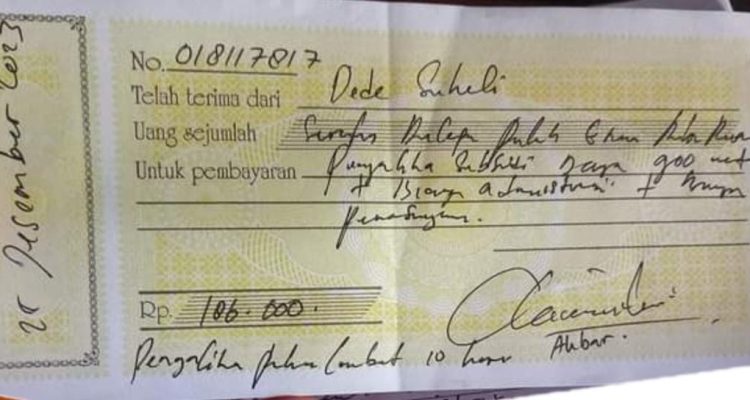 25 Desember 2023
No. 018117817
Telah terima dari Dede Suheli
Uang sejumlah Seratus Delapan puluh Enam Ribu
Untuk pembayaran Pengalihan Subsidi daya 900
+ Biaya administrasi +
Rp. 186.000.
paling lambat 10 hari
Akbar.